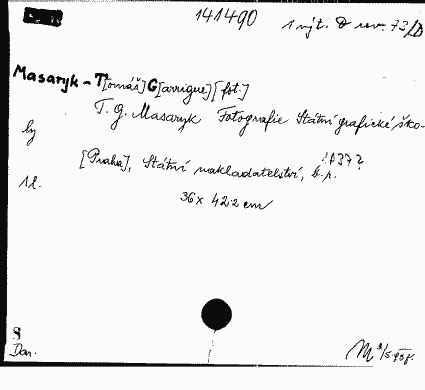 141490 1 výt. D rev. 73/D
Masaryk - T[omáš] G[arrigue] [fot.]
T. G. Masaryk Fotografie Státní grafické ško-
ly
1937?
[Praha], Státní nakladatelství, b.r.
1 l.
36 x 42.2 cm
8
Dar.